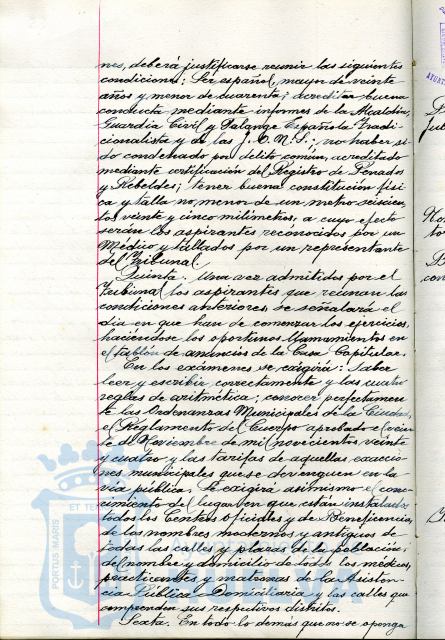 nes, deberá justificarse reunir las siguientes
condiciones: Ser español, mayor de veinte
años y menor de cuarenta; acreditar buena
conducta mediante informes de la Alcaldía,
Guardia Civil y Falange Española Tradi-
cionalista y de las J.O.N.S.; no haber si-
do condenado por delito comun, acreditado
mediante certificación del Registro de Penados
y Rebeldes; tener buena constitución físi-
ca y talla no menor de un metro seiscien-
tos veinte y cinco milimetros, a cuyo efecto
serán los aspirantes reconocidos por un
Médico y tallados por un representante
del Tribunal.
Quinta. Una vez admitidos por el
Tribunal los aspirantes que reunan las
condiciones anteriores, se señalará el
dia en que han de comenzar los ejercicios,
haciéndose los oportunos llamamientos en
el tablón de anuncios de la Casa Capitular.
En los exámenes se exigirá: Saber
leer y escribir correctamente y las cuatro
reglas de aritmética; conocer perfectamen-
te las Ordenanzas Municipales de la Ciudad,
el Reglamento del Cuerpo aprobado el vein-
te de Noviembre de mil novecientos veinte
y cuatro y las tarifas de aquellas exaccio-
nes municipales que se devenguen en la
vía pública. Se exigirá asimismo el cono-
cimiento del lugar en que están instalados
todos los Centros oficiales y de Beneficencia,
de los nombres modernos y antiguos de
todas las calles y plazas de la población;
del nombre y domicilio de todos los médicos,
practicantes y matronas de la Asisten-
cia Pública Domiciliaria y las calles que
comprenden sus respectivos distritos.
Sexta. En todo lo demás que no se oponga
PORTUS MARIS
ET TE
HUELVA